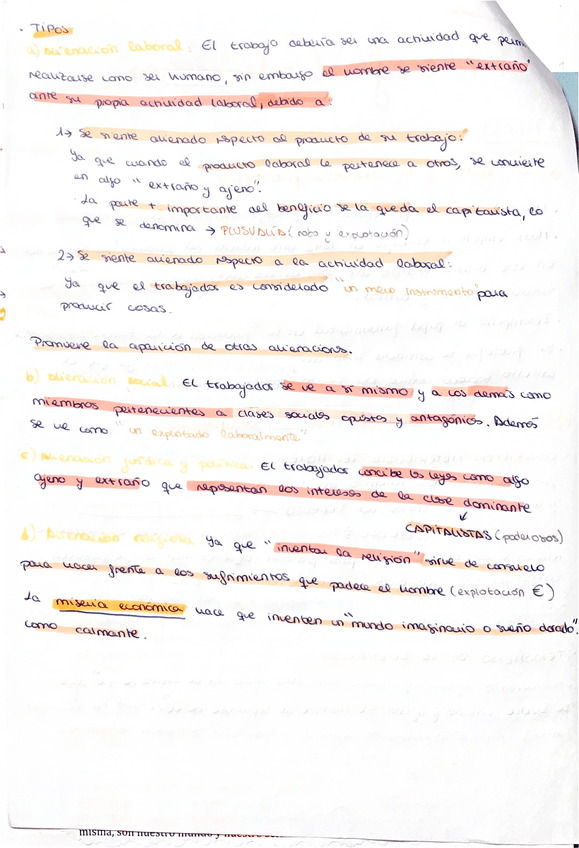 · TIPOS
a) Alienación laboral: El trabajo debería ser una actividad que perm
realizarse como ser humano, sin embargo el hombre se siente "extraño"
ante su propia actividad laboral, debido a:
1→ Se siente alienado respecto al producto de su trabajo:
Ya que cuando el producto laboral le pertenece a otros, se convierte
en algo "extraño y ajeno".
· La parte + importante del beneficio se la queda el capitalista, lo
que se denomina → PLUSVALÍA (robo y explotación)
2→ Se siente alienado respecto a la actividad laboral:
Ya que el trabajador es considerado "un mero instrumento" para
producir cosas.
Promueve la aparición de otras alienacions.
b) alienación social: El trabajador se ve a sí mismo y a los demás como
miembros pertenecientes a clases sociales opustos y antagónicos. Además
se ve como "un explotado laboralmente"
c) Alienación jurídica y política: El trabajador concibe las leyes como algo
ajeno y extraño que representan los intereses de la clase dominante
↓
CAPITALISTAS (poderosos)
d) Alienación religiosa Ya que "inventan la religión" sirve de consuelo
para hacer frente a los sufrimientos que padece el hombre (explotación €)
La miseria económica hace que inventen un "mundo imaginario o sueño dorado"
como calmante.
misma, son nuestro mundo y nuestro